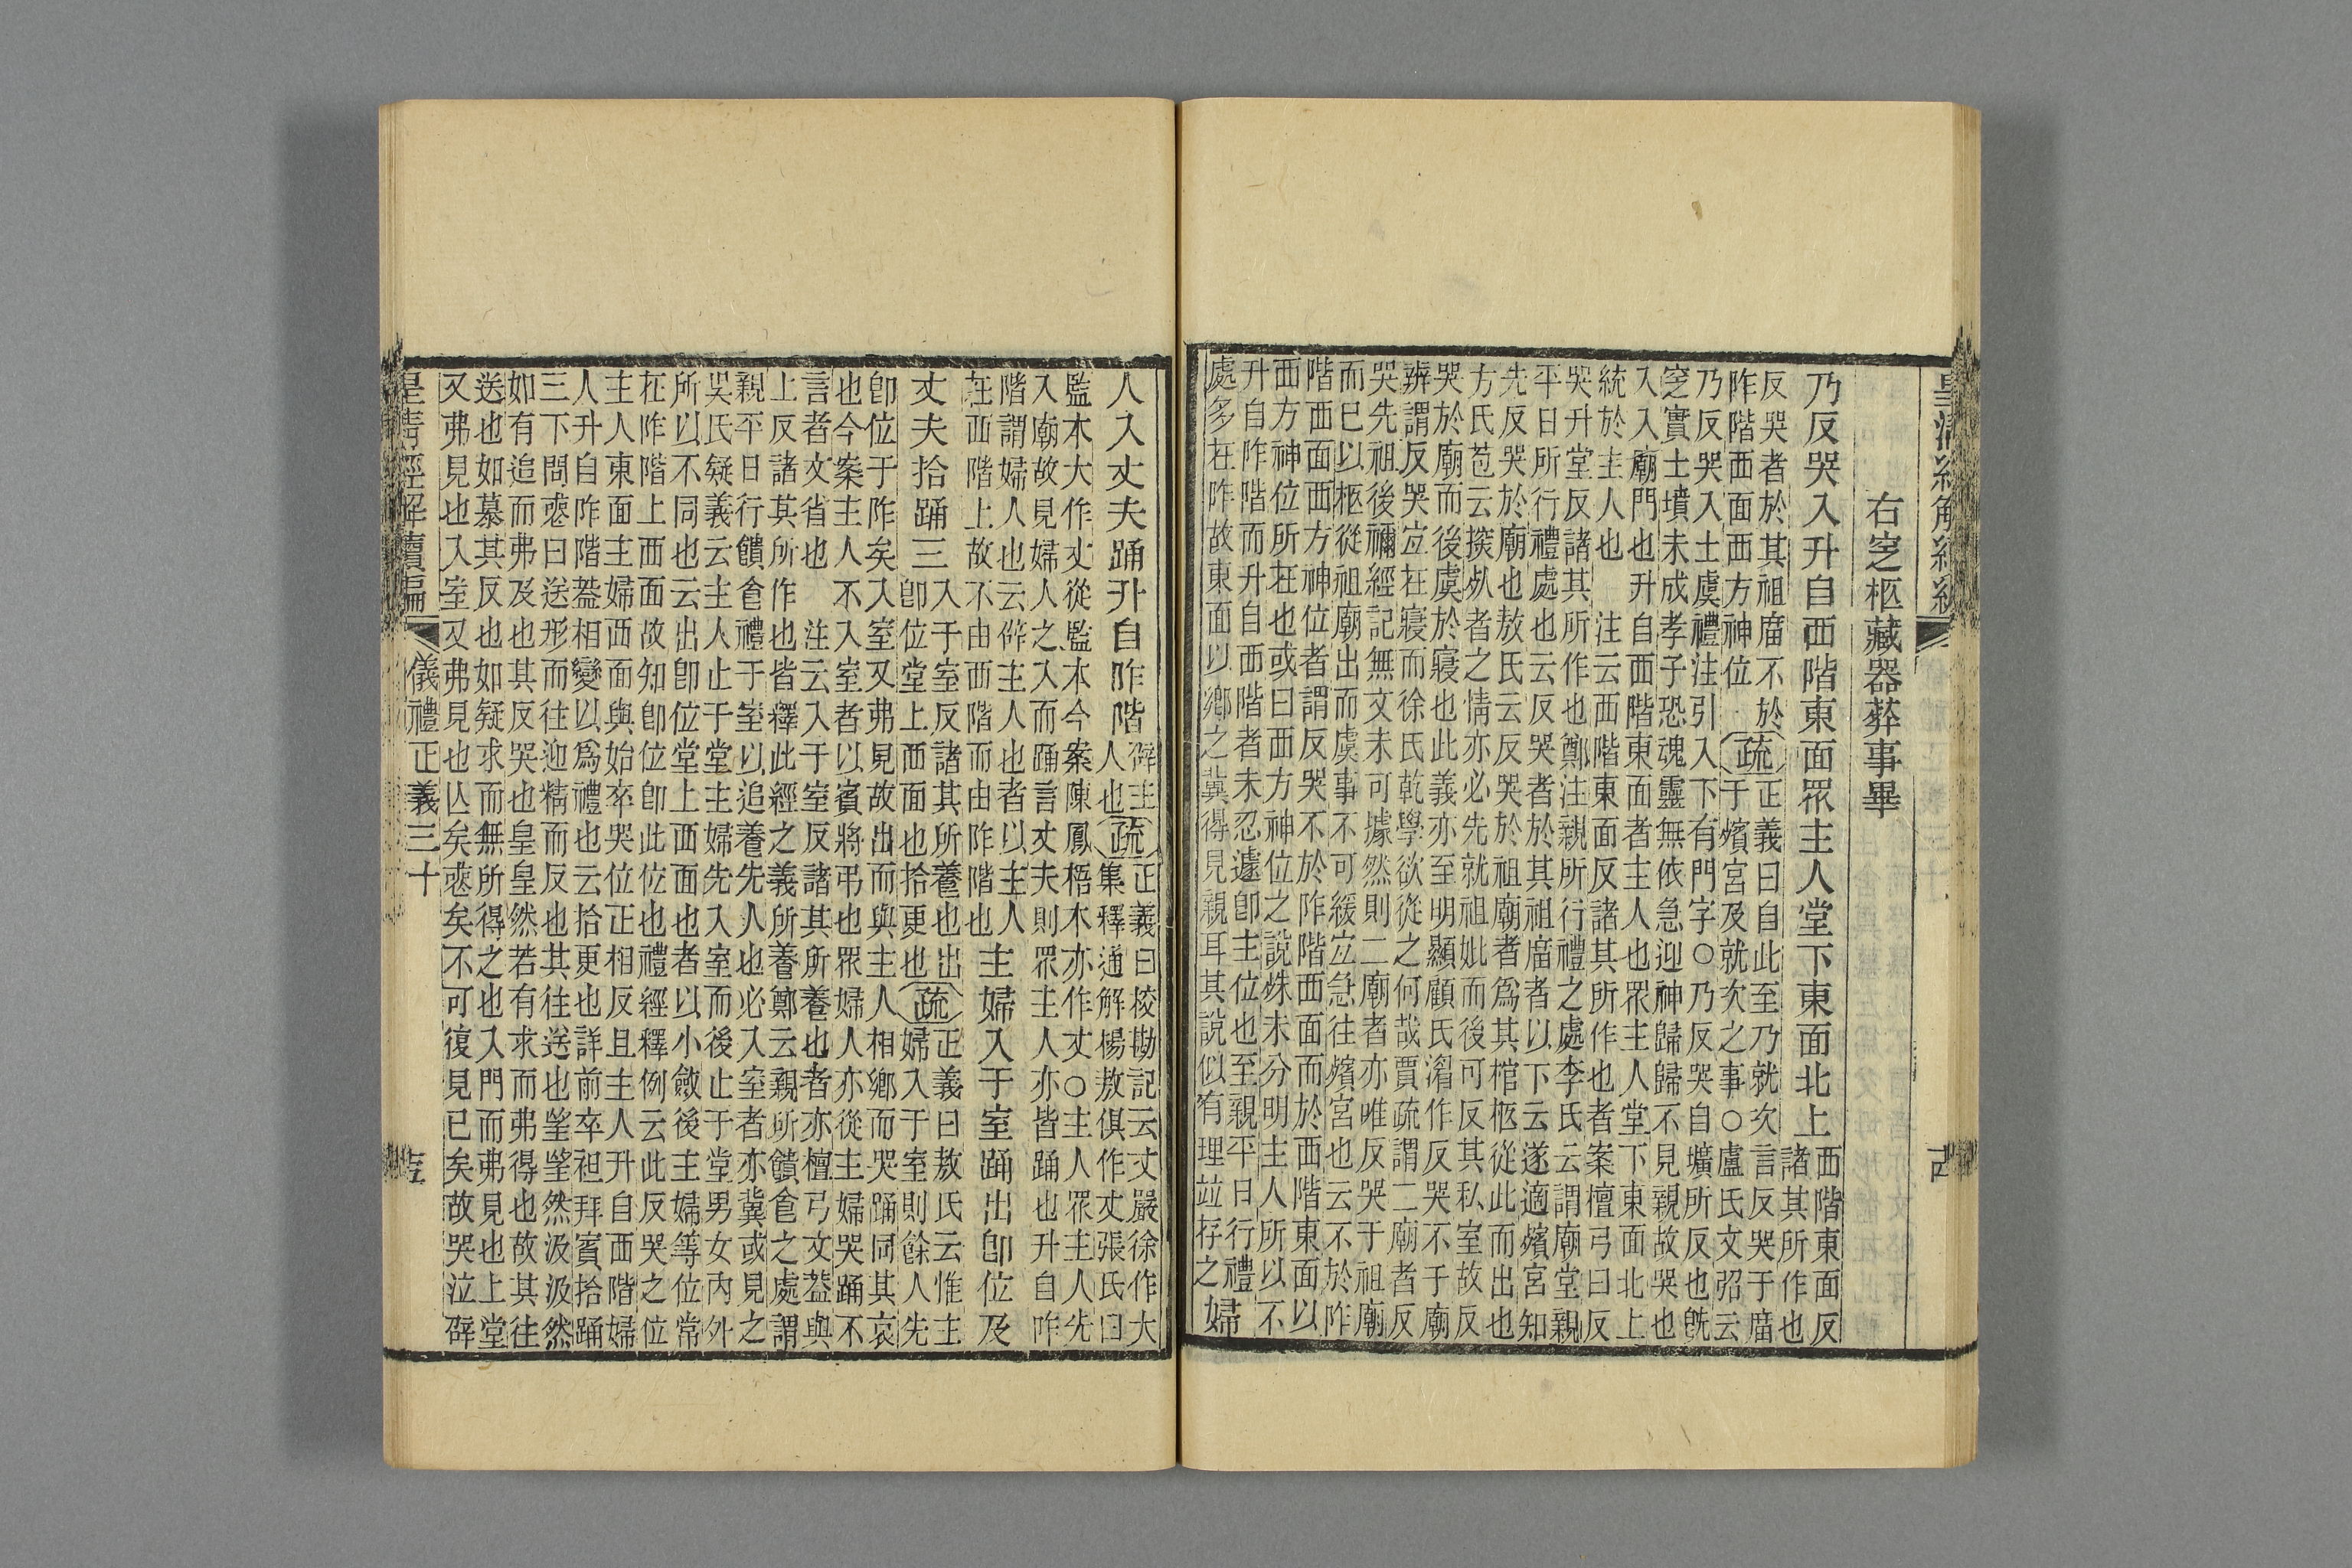 皇清經解續編
右窆柩藏器葬事畢
乃反哭入升自西階東面眾主人堂下東面北上
西階東面反
諸其所作也
反哭者於其祖廟不於
阼階西面西方神位
疏
正義曰自此至乃就次言反哭于廟
于殯宮及就次之事○盧氏文弨云
乃反哭入士虞禮注引入下有門字○乃反哭自壙所反也旣
窆實土墳未成孝子恐魂靈無依急迎神歸歸不見親故哭也
入入廟門也升自西階東面者主人也眾主人堂下東面北上
統於主人也 注云西階東面反諸其所作也者案檀弓曰反
哭升堂反諸其所作也鄭注親所行禮之處李氏云謂廟堂親
平日所行禮處也云反哭者於其祖廟者以下云遂適殯宮知
先反哭於廟也敖氏云反哭於祖廟者爲其棺柩從此而出也
方氏苞云揆死者之情亦必先就祖妣而後可反其私室故反
哭於廟而後虞於寢也此義亦至明顯顧氏湄作反哭不于廟
辨謂反哭宜在寢而徐氏乾學欲從之何哉賈疏謂二廟者反
哭先祖後禰經記無文未可據然則二廟者亦唯反哭于祖廟
而已以柩從祖廟出而虞事不可緩宜急往殯宮也云不於阼
階西面西方神位者謂反哭不於阼階西面而於西階東面以
西方神位所在也或曰西方神位之說殊未分明主人所以不
升自阼階而升自西階者未忍遽卽主位也至親平日行禮
處多在阼故東面以鄉之冀得見親耳其說似有理並存之
婦
人入丈夫踊升自阼階
辟主
人也
疏
正義曰校勘記云丈嚴徐作大
集釋通解楊敖俱作丈張氏曰
監本大作丈從監本今案陳鳳梧本亦作丈○主人眾主人先
入廟故見婦人之入而踊言丈夫則眾主人亦皆踊也升自阼
階謂婦人也云辟主人也者以主人
在西階上故不由西階而由阼階也
主婦入于室踊出卽位及
丈夫拾踊三
入于室反諸其所養也出
卽位堂上西面也拾更也
疏
正義曰敖氏云惟主
婦入于室則餘人先
卽位于阼矣入室又弗見故出而與主人相鄉而哭踊同其哀
也今案主人不入室者以賓將弔也眾婦人亦從主婦哭踊不
言者文省也 注云入于室反諸其所養也者亦檀弓文蓋與
上反諸其所作也皆釋此經之義所養鄭云親所饋食之處謂
親平日行饋食禮于室以追養先人也必入室者亦冀或見之
吳氏疑義云主人止于堂主婦先入室而後止于堂男女內外
所以不同也云出卽位堂上西面也者以小斂後主婦等位常
在阼階上西面故知卽位卽此位也禮經釋例云此反哭之位
主人東面主婦西面與始卒哭位正相反且主人升自西階婦
人升自阼階蓋相變以爲禮也云拾更也詳前卒袒拜賓拾踊
三下問喪曰送形而往迎精而反也其往送也望望然汲汲然
如有追而弗及也其反哭也皇皇然若有求而弗得也故其往
送也如慕其反也如疑求而無所得之也入門而弗見也上堂
又弗見也入室又弗見也亡矣喪矣不可復見已矣故哭泣辟
皇清經解續編 儀禮正義三十